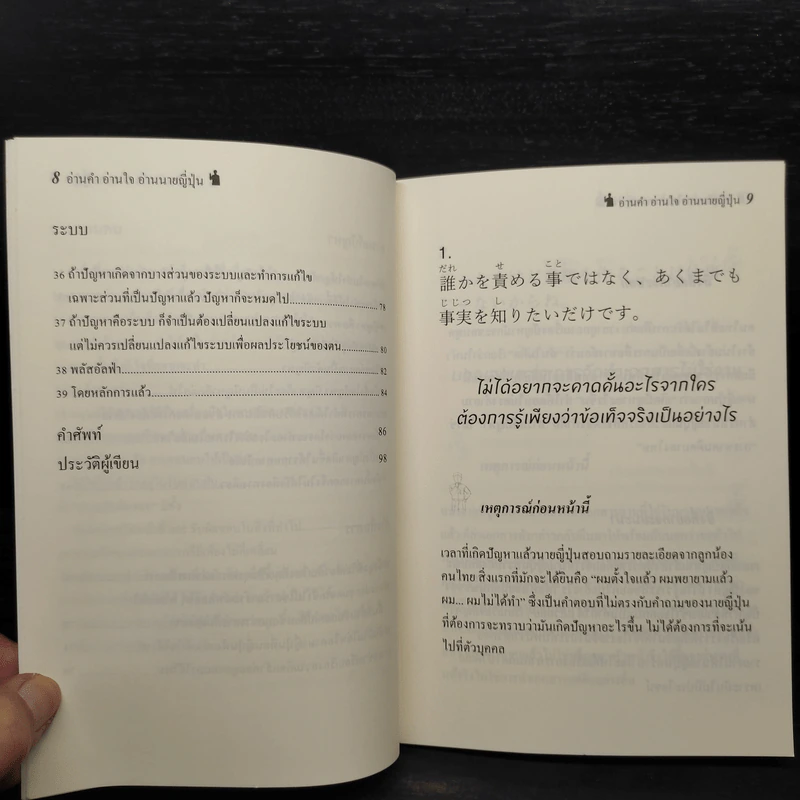 8 อ่านคำ อ่านใจ อ่านนายญี่ปุ่น
ระบบ
36 ถ้าปัญหาเกิดจากบางส่วนของระบบและทำการแก้ไข
เฉพาะส่วนที่เป็นปัญหาแล้ว ปัญหาก็จะหมดไป 78
37 ถ้าปัญหาคือระบบ ก็จำเป็นต้องเปลี่ยนแปลงแก้ไขระบบ
แต่ไม่ควรเปลี่ยนแปลงแก้ไขระบบเพื่อผลประโยชน์ของตน 80
38 พลัสอัลฟ่า 82
39 โดยหลักการแล้ว 84
คำศัพท์ 86
ประวัติผู้เขียน 98
อ่านคำ อ่านใจ อ่านนายญี่ปุ่น 9
1.
だれ せ こと
誰かを責める事ではなく、あくまでも
じじつ し
事実を知りたいだけです。
ไม่ได้อยากจะคาดคั้นอะไรจากใคร
ต้องการรู้เพียงว่าข้อเท็จจริงเป็นอย่างไร
เหตุการณ์ก่อนหน้านี้
เวลาที่เกิดปัญหาแล้วนายญี่ปุ่นสอบถามรายละเอียดจากลูกน้อง
คนไทย สิ่งแรกที่มักจะได้ยินคือ “ผมตั้งใจแล้ว ผมพยายามแล้ว
ผม... ผมไม่ได้ทำ” ซึ่งเป็นคำตอบที่ไม่ตรงกับคำถามของนายญี่ปุ่น
ที่ต้องการจะทราบว่ามันเกิดปัญหาอะไรขึ้น ไม่ได้ต้องการที่จะเน้น
ไปที่ตัวบุคคล